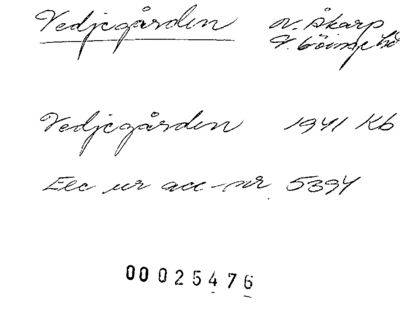 Vedjegården N. Åkarp
V. Göinge hd
Vedjegården 1941 Kb
Exc ur acc-nr 5394
00025476